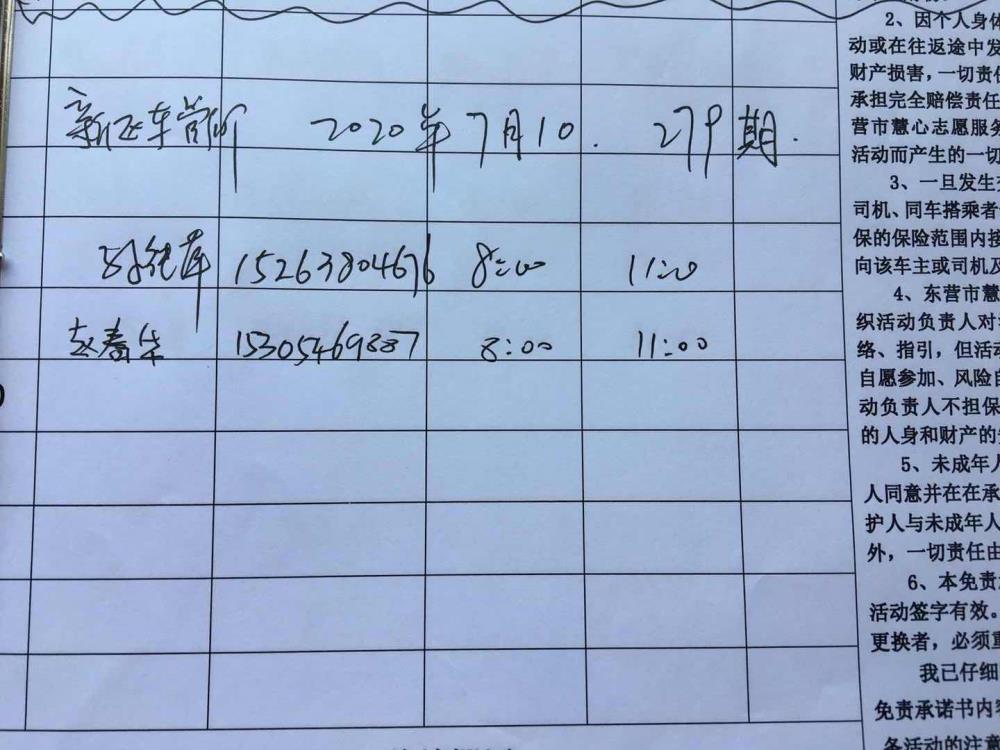 新 车管所 2020年7月10. 279期.
15263804676 8:00 11:00
赵春华 15305469887 8:00 11:00
2、因个人身体
动或在往返途中发
财产损害，一切责任
承担完全赔偿责任
营市慧心志愿服务
活动而产生的一切
3、一旦发生交
司机、同车搭乘者
保的保险范围内接
向该车主或司机及
4、东营市慧
织活动负责人对
络、指引，但活动
自愿参加、风险自
动负责人不担保
的人身和财产的
5、未成年人
人同意并在在承
护人与未成年人
外，一切责任由
6、本免责
活动签字有效。
更换者，必须重
我已仔细
免责承诺书内容
各活动的注意